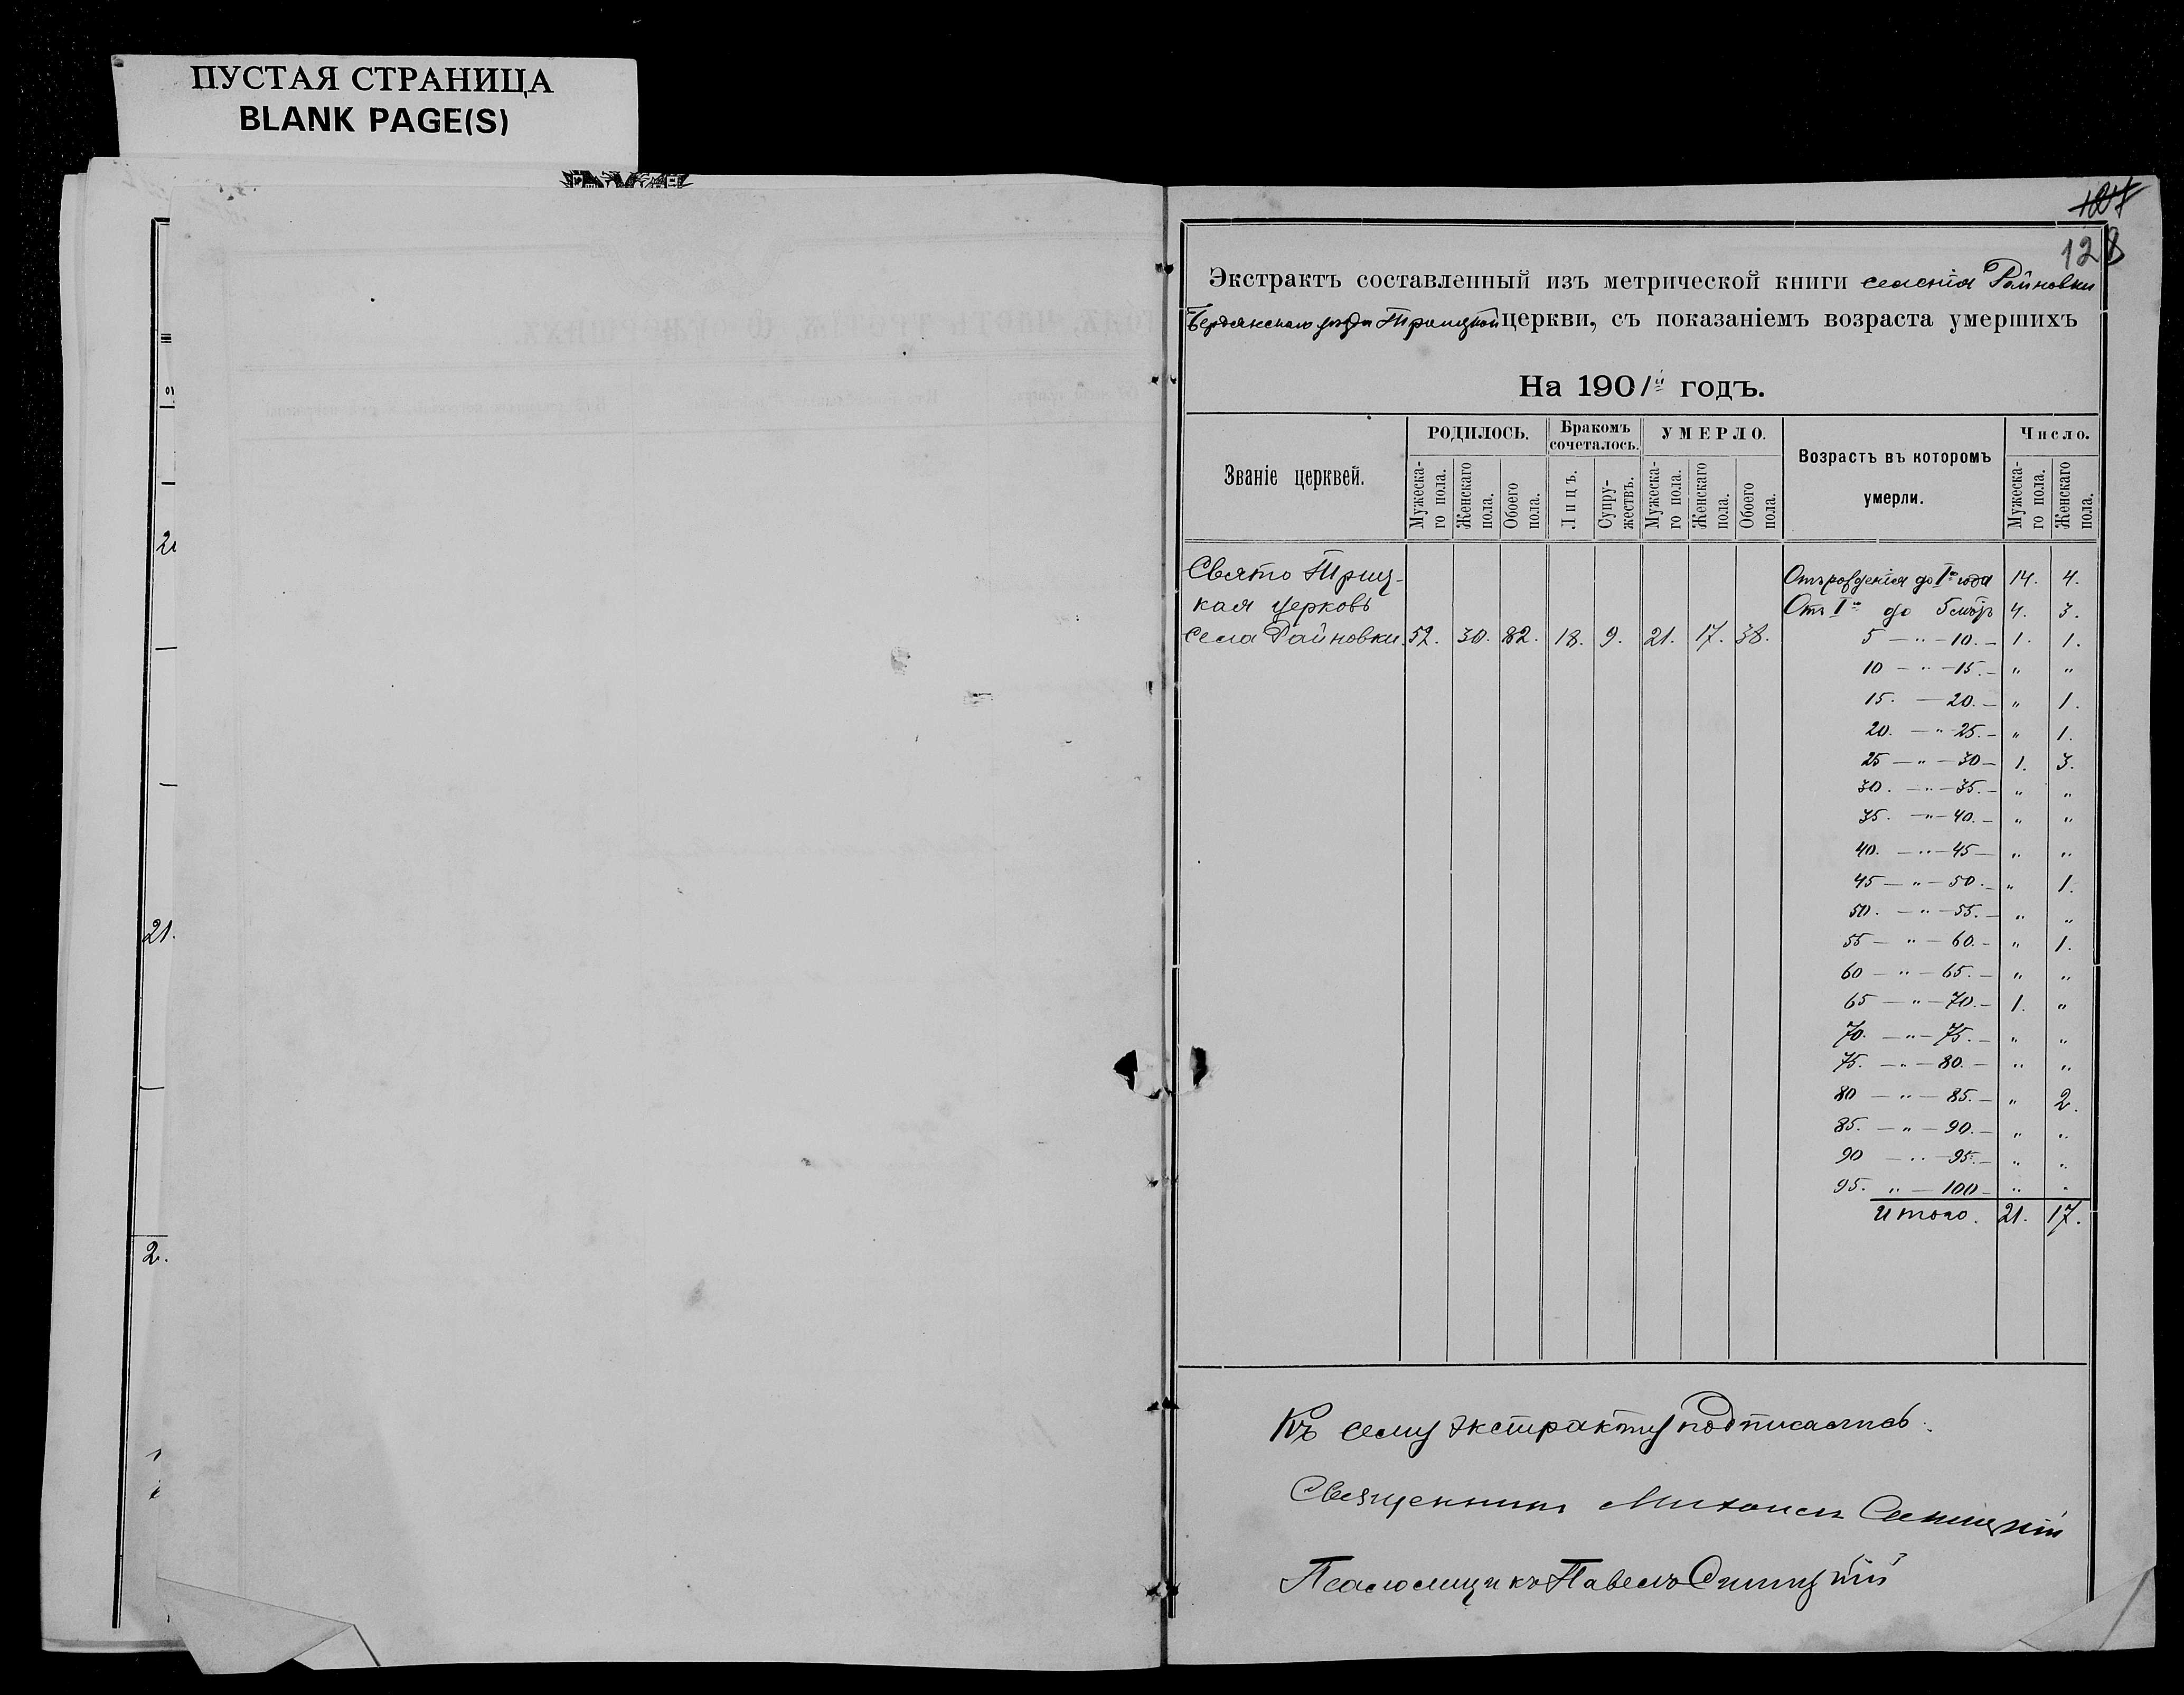 ПУСТАЯ СТРАНИЦА
BLANK PAGE(S)
2.
21.
2.
128
Экстрактъ составленный изъ метрической книги селенія Райновки
Бердянскаго уѣзда Троицкой церкви, съ показаніемъ возраста умершихъ
На 1901й годъ.
Званіе церквей.
РОДИЛОСЬ.
Мужеска-
го пола.
Женскаго
пола.
Обоего
пола.
Бракомъ
сочеталось.
Лицъ.
Супру-
жествъ.
УМЕРЛО.
Мужеска-
го пола.
Женскаго
пола.
Обоего
пола.
Возрастъ въ которомъ
умерли.
Число.
Мужеска-
го пола.
Женскаго
пола.
Свято Троиц-
кая церковь
села Райновки. 52. 30. 82. 18. 9. 21. 17. 38.
Отъ рожденія до 1го года 14. 4.
Отъ 1го до 5 лѣтъ 4. 3.
5 — " — 10. — 1. 1.
10 — " — 15. — " "
15. — 20. — " 1.
20. — " 25. — " 1.
25 — " — 30 — 1. 3.
30. — " — 35. — " "
35. — " — 40. — " "
40. — " — 45 — " "
45 — " — 50. — " 1.
50. — " — 55. — " "
55 — " — 60. — " 1.
60 — " — 65. — " "
65 — " — 70. — 1. "
70. — " — 75. — " "
75. — " — 80. — " "
80 — " — 85. — " 2.
85. — " — 90. — " "
90 — " — 95. — " "
95. " — 100 — " "
Итого. 21. 17.
Къ сему экстракту подписались:
Священникъ Михаилъ Синицкій
Псаломщикъ Павелъ Синицкій